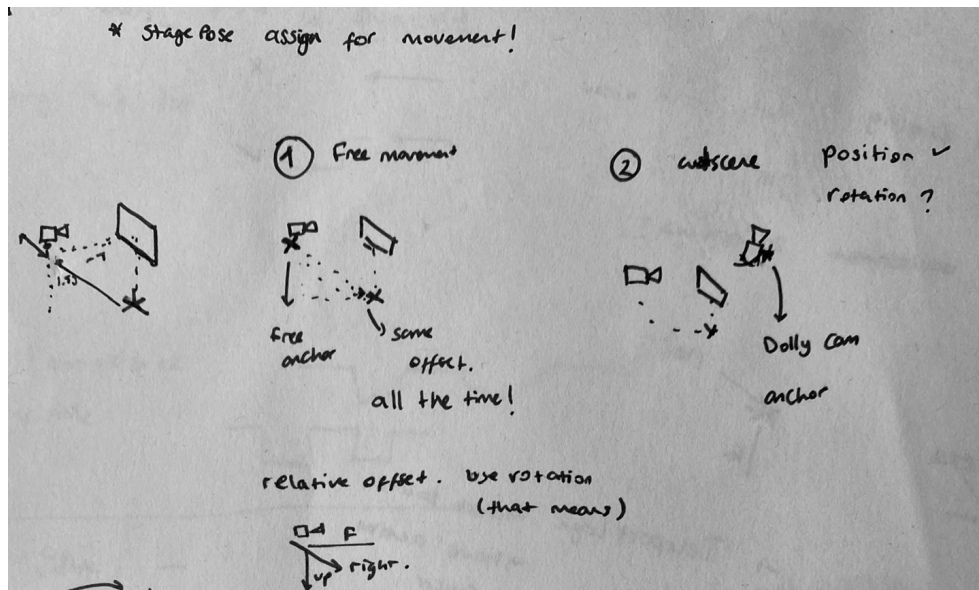 * Stage Pose assign for movement!
① Free movement
② cutscene
position ✓
rotation ?
1.45
free
anchor
same
offset.
all the time!
Dolly Cam
anchor
relative offset. use rotation
(that means)
F
right.
up